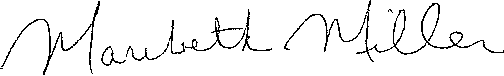 Maribeth Miller